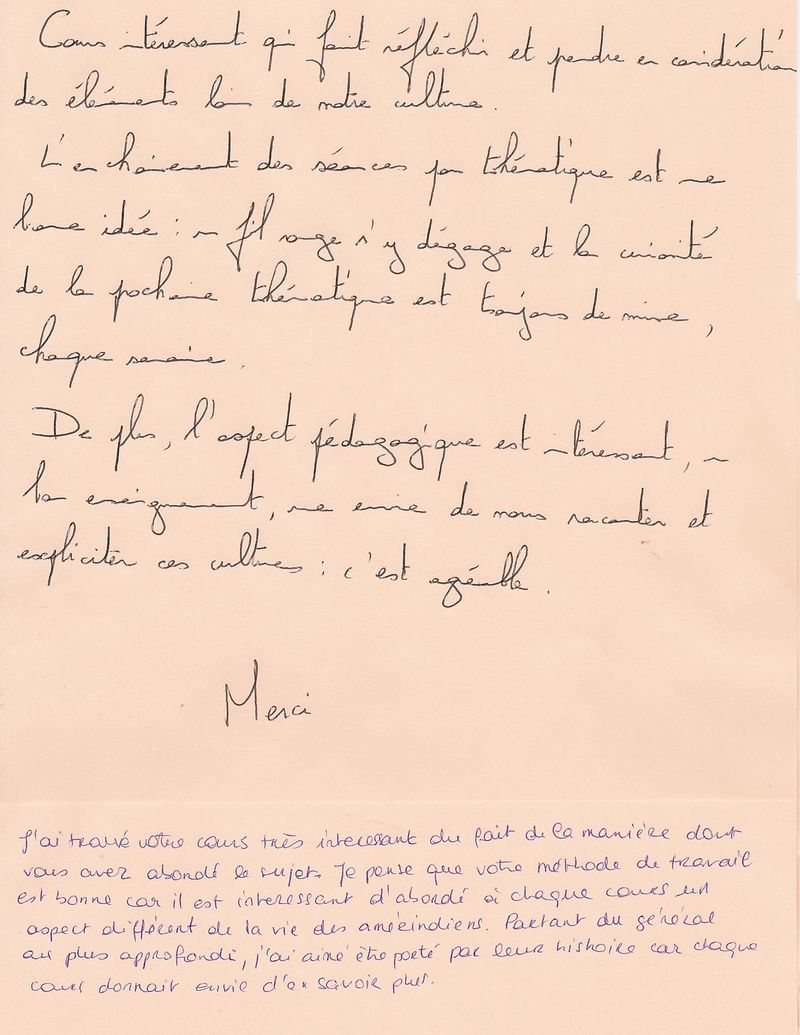 Cours intéressant qui fait réfléchir et prendre en considération
des éléments loin de notre culture.
L'enchainement des séances par thématique est une
bonne idée : un fil rouge s'y dégage et la curiosité
de la prochaine thématique est toujours de mise,
chaque semaine.
De plus, l'aspect pédagogique est intéressant, un
bon enseignement, une envie de nous raconter et
expliciter ces cultures : c'est agréable.
Merci
J'ai trouvé votre cours très interessant du fait de la manière dont
vous avez abordé le sujet. Je pense que votre méthode de travail
est bonne car il est interessant d'abordé à chaque cours un
aspect différent de la vie des amérindiens. Partant du général
au plus approfondi, j'ai aimé être porté par leur histoire car chaque
cours donnait envie d'en savoir plus.